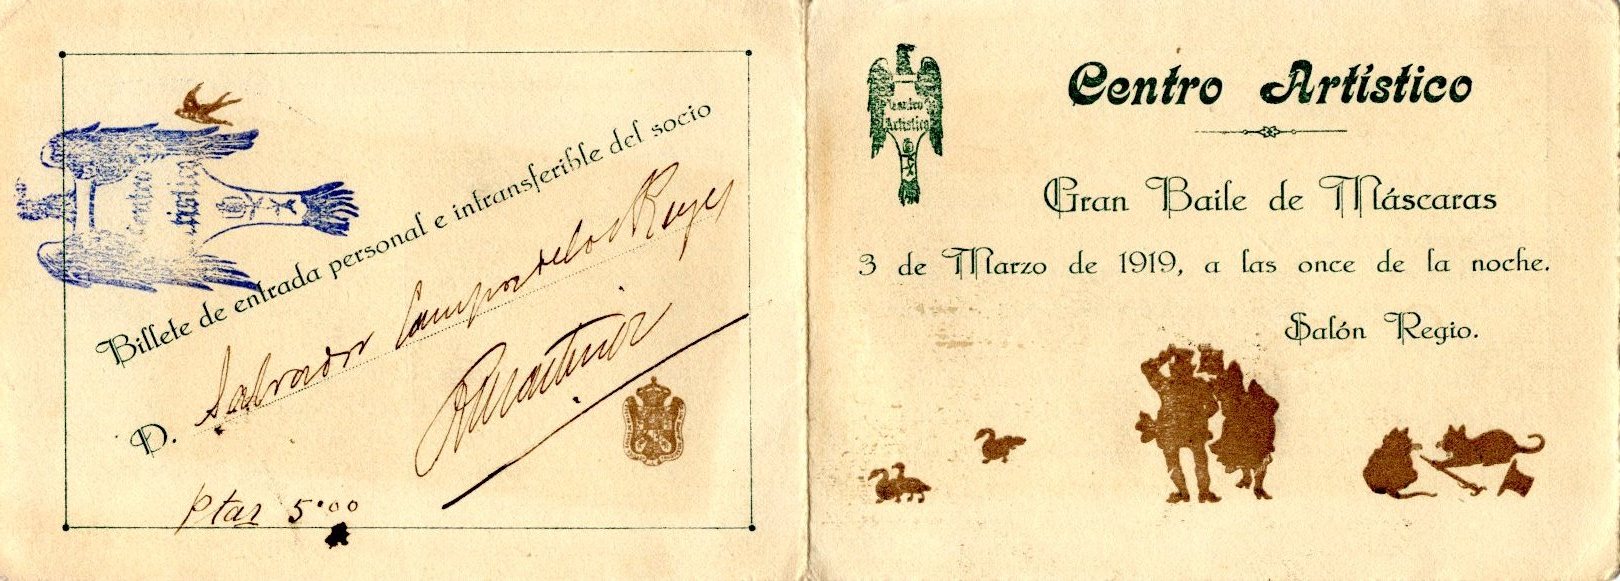 Billete de entrada personal e intransferible del socio
D. Salvador Campo de los Reyes
Ptas 5'00
Centro
Artístico
Centro Artístico
Centro
Artístico
Gran Baile de Máscaras
3 de Marzo de 1919, a las once de la noche.
Salón Regio.